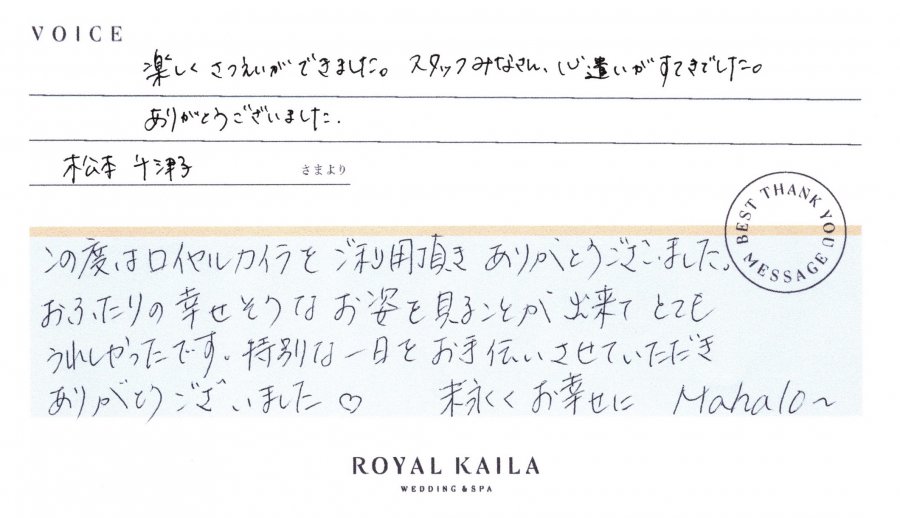 VOICE
楽しく さつえいが できました。 スタッフみなさん、心遣いがすてきでした。
ありがとうございました.
松本 千津子 さまより
BEST THANK YOU MESSAGE
この度はロイヤルカイラを ご利用頂き ありがとうございました。
おふたりの幸せそうな お姿を見ることが 出来て とても
うれしかったです. 特別な一日を お手伝いさせていただき
ありがとうございました♡ 末永くお幸せに Mahalo~
ROYAL KAILA
WEDDING & SPA